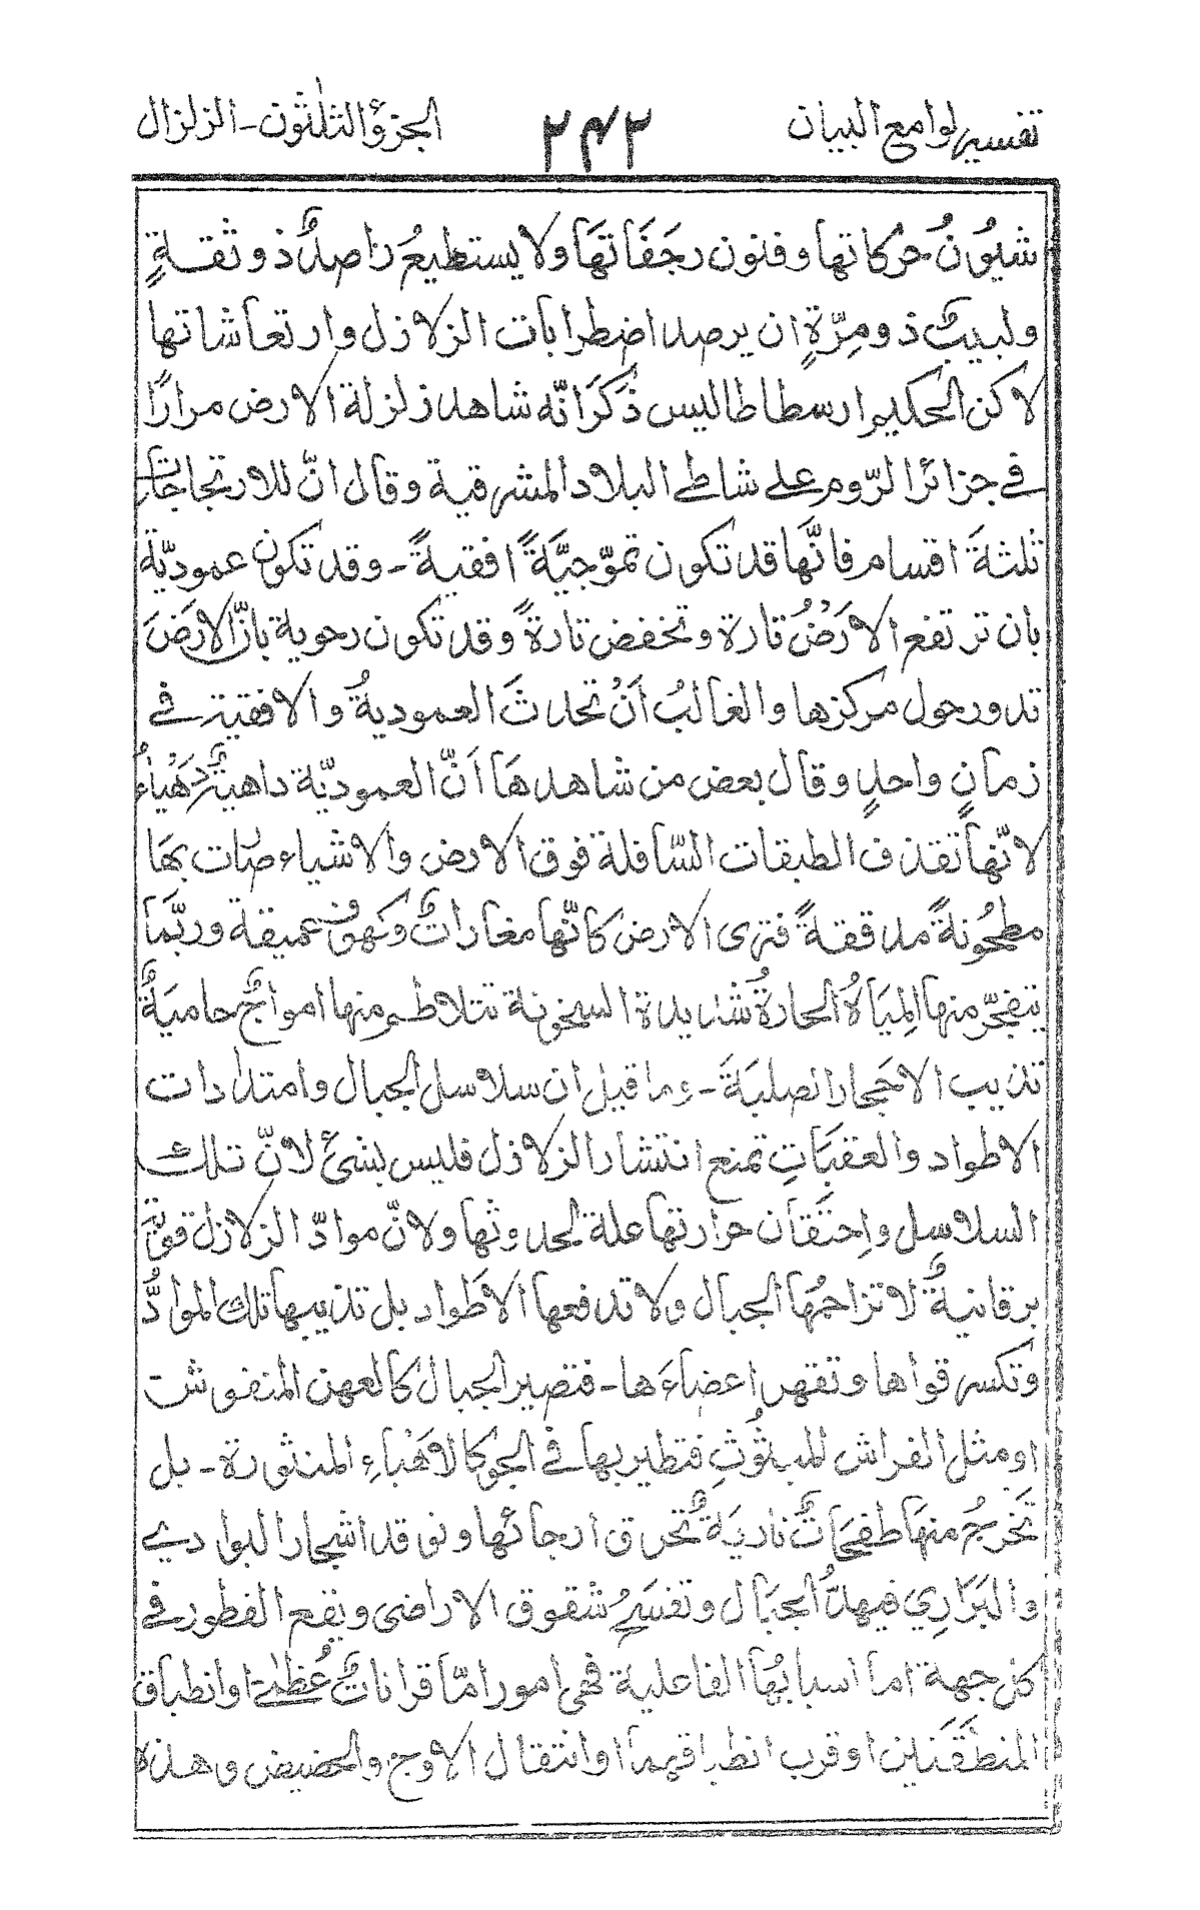 تفسير لوامع البيان ٢٤٢ الجزؤ الثلٰثون - الزلزال
شيُونُ حركاتها وفنون رجَفَاتهَا ولا يستطيعُ راصدٌ ذو ثقةٍ
ولبيبٌ ذو مِرّةٍ ان يرصد اضطرابات الزلازل وارتعاشاتها
لاكن الحكيم ارسطاطاليس ذكَرَ انّه شاهد زلزلة الارض مرارًا
في جزائر الرّوم على شاطئ البلاد المشرقية وقال انّ للارتجاجات
ثلثةَ اقسام فانَّها قد تكون تموّجيَّةً افقيةً - وقد تكون عموديّة
بان ترتفع الارَضُ تارة وتخفض تارةً وقد تكون رحوية بانّ الارَضَ
تدور حول مركزها والغالبُ اَنْ تحدثَ العموديةُ والافقية في
زمانٍ واحدٍ وقال بعض من شاهدهَا اَنَّ العموديّة داهيةٌ دَهْيَاءُ
لانّها تقذف الطبقات السّافلة فوق الارض والاشياء صارت بهَا
مطحُونةً مدققةً فترى الارض كانّها مغاراتٌ وكهوفٌ عميقة وربَّما
تتفجّر منها المِيَاهُ الحارةُ شديدة السخونة تتلاطم منها امواجٌ حاميَةٌ
تذيب الاحَجار الصلبَةَ - وما قيل ان سلاسل الجبال وامتدادات
الاطواد والعقبَاتِ تمنع انتشار الزلازل فليس بشئ لانّ تلك
السلاسل واحِتَقان حرارتها علة لحدوثها ولانّ موادّ الزلازل قويّة
برقانيةٌ لا تزاحمُها الجبال ولا تدفعها الاطَواد بل تذيبها تلك الموادُّ
وتكسر قواها وتقهر اعضاءَها - فتصير الجبال كالعهن المنفوش
او مثل الفراش المبثُوثِ فتطير بها في الجو كالاَهْباءِ المنثورة - بل
تَخرجُ منهَا طفحَاتٌ ناريَةٌ تُحرق ارجائها وتوقد اشجار البوادي
والبَرَاري فيهدُّ الجبَال وتفسَرُ شقوق الاراضى ويقع الفطور في
كل جهة اما اسبابُها الفاعلية فهى امور امّا قراناتٌ عُظمىٰ او انطباق
المنطَقَتين او قرب انطباقهما او انتقال الاوج والحضيض وهذه